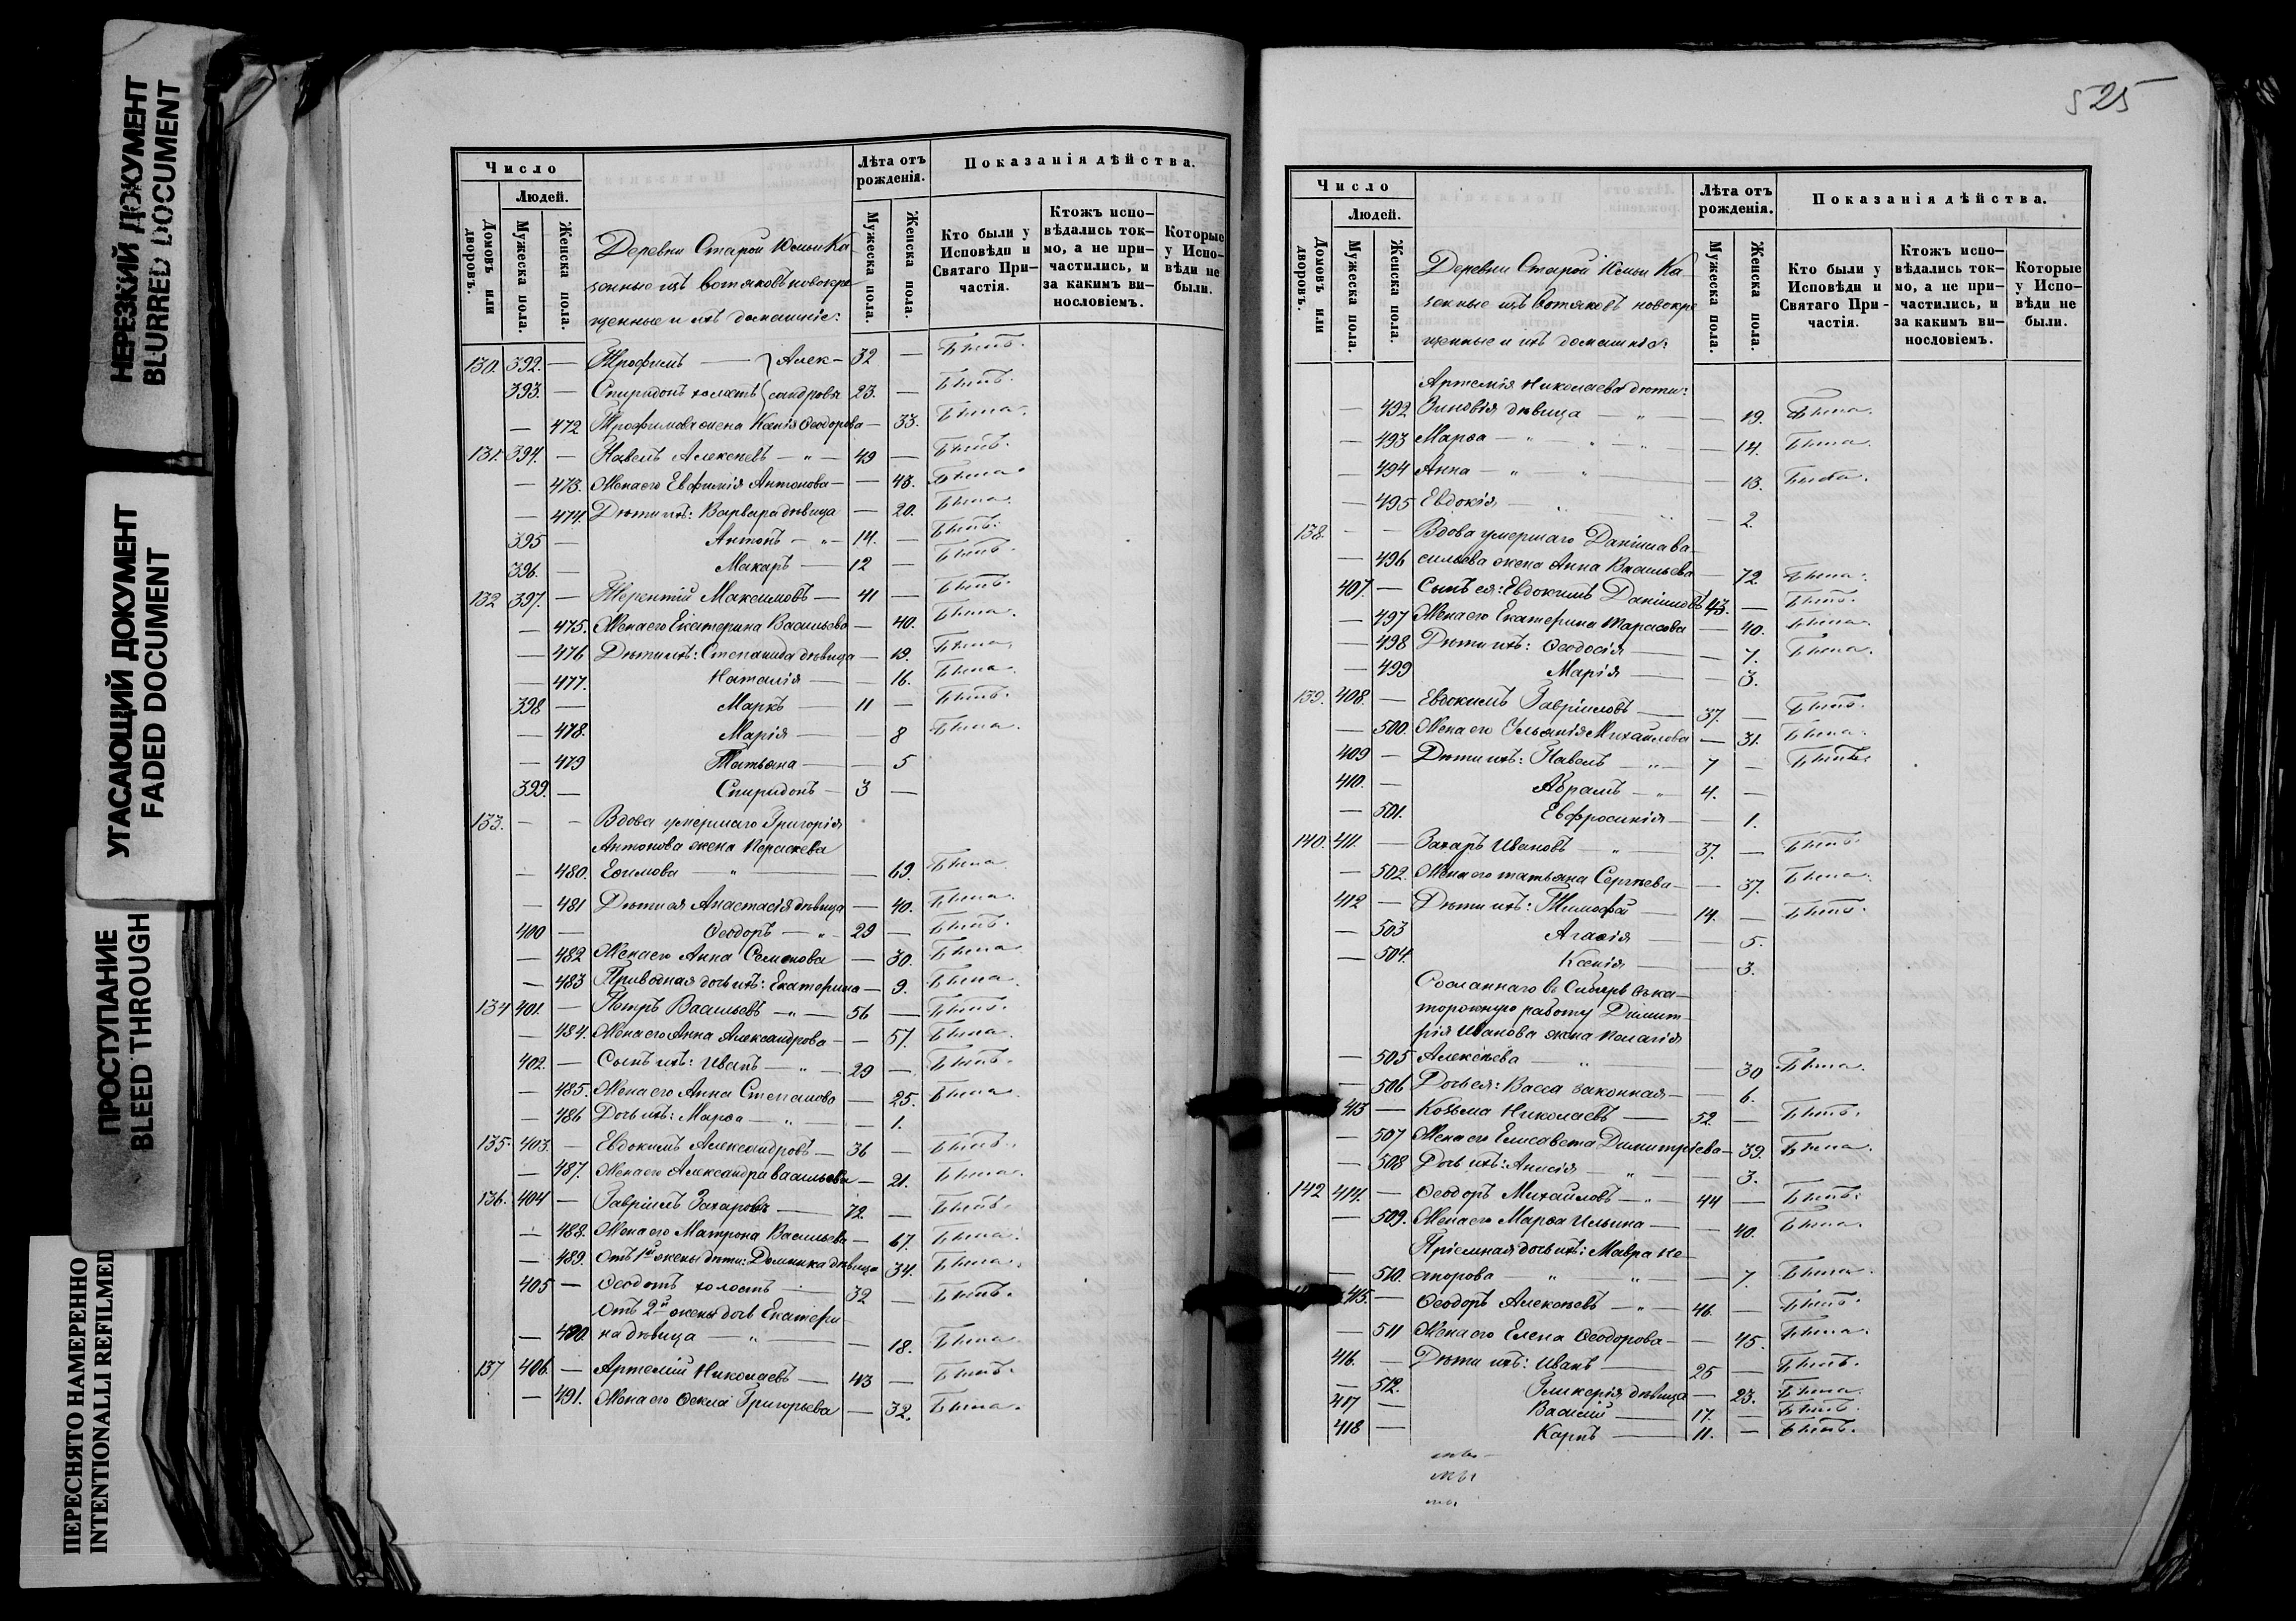 НЕРЕЗКИЙ ДОКУМЕНТ
BLURRED DOCUMENT
УГАСАЮЩИЙ ДОКУМЕНТ
FADED DOCUMENT
ПРОСТУПАНИЕ
BLEED THROUGH
ПЕРЕСНЯТО НАМЕРЕННО
INTENTIONALLI REFILMED
Число
Людей.
Домовъ или дворовъ.
Мужеска пола.
Женска пола.
Деревни Старой Юмьи Ка
зенные изъ вотяковъ новокре
щенные и ихъ домашніе:
Лѣта отъ рожденія.
Мужеска пола.
Женска пола.
Показанія дѣйства.
Кто были у Исповѣди и Святаго При-частія.
Ктожъ испо-вѣдались ток-мо, а не при-частились, и за какимъ ви-нословіемъ.
Которые у Испо-вѣди не были.
130. 392. — Трофимъ — } Алек- 32 — Бытъ.
393. — Спиридонъ холостъ } сандровы 23. — Бытъ.
— 472 Трофимова жена Ксенія Ѳеодорова — 33. Была.
131. 394. — Павелъ Алексѣевъ — „ — 49 — Бытъ.
— 473. Жена его Евфимія Антонова — — 43. Была.
— 474. Дѣти ихъ: Варвара дѣвица — 20. Была.
395 — Антонъ — „ — 14. — Бытъ.
396. — Макаръ — 12 — Бытъ.
132 397. — Терентій Максимовъ — 41 — Бытъ.
— 475. Жена его Екатерина Васильева — 40. Была.
— 476 Дѣти ихъ: Степанида дѣвица — 19. Была.
— 477. Наталія — — 16. Была.
398 — Маркъ — 11 — Бытъ.
— 478. Марія — — 8 Была.
— 479 Татьяна — — 5
399. — Спиридонъ — 3 —
133. — — Вдова умершаго Григорія
Антонова жена Параскева
— 480. Ефимова — „ — — 69. Была
— 481 Дѣти ея Анастасія дѣвица — 40. Была.
400 — Ѳеодоръ — „ 29 — Бытъ.
— 482 Жена его Анна Семенова — 30. Была
— 483 Приводная дочь ихъ: Екатерина — 9. Была.
134 401. — Петръ Васильевъ — „ — 56 — Бытъ.
— 484. Жена его Анна Александрова — — 57. Была.
402. — Сынъ ихъ: Иванъ — „ — 29 — Бытъ.
— 485. Жена его Анна Степанова — 25. Была.
— 486 Дочь ихъ: Марѳа — „ — — 1.
135. 403. — Евдокимъ Александровъ — 36 — Бытъ.
— 487. Жена его Александра Васильева — 21. Была.
136. 404 — Гавріилъ Захаровъ — 72. — Бытъ.
— 488. Жена его Матрона Васильева — 67. Была.
— 489. Отъ 1й жены дѣти: Домника дѣвица 34. Была.
405 — Ѳеодотъ холостъ — 32 — Бытъ.
Отъ 2й жены дочь Екатери
— 490. на дѣвица — „ — — 18. Была.
137 406. — Артемій Николаевъ — 43 — Бытъ.
— 491. Жена его Ѳекла Григорьева — 32. Была.
525
Число
Людей.
Домовъ или дворовъ.
Мужеска пола.
Женска пола.
Деревни Старой Юмьи Ка
зенные изъ Вотяковъ новокре
щенные и ихъ домашніе:
Лѣта отъ рожденія.
Мужеска пола.
Женска пола.
Показанія дѣйства.
Кто были у Исповѣди и Святаго При-частія.
Ктожъ испо-вѣдались ток-мо, а не при-частились, и за какимъ ви-нословіемъ.
Которые у Испо-вѣди не были.
Артемія Николаева дѣти:
— 492 Зиновія дѣвица — „ — — 19. Была.
— 493 Марѳа — „ — „ — „ — 14. Была.
— 494 Анна — „ — „ — 13. Была.
— 495 Евдокія — „ — „ — 2.
138. — — Вдова умершаго Даніила Ва-
— 496 сильева жена Анна Васильева — 72. Была.
407. — Сынъ ея: Евдокимъ Даніиловъ 43. — Бытъ.
— 497 Жена его Екатерина Тарасова — 40. Была.
— 498 Дѣти ихъ: Ѳеодосія — — 7. Была.
— 499 Марія — — 3.
139. 408. — Евдокимъ Гавріиловъ — 37. — Бытъ.
— 500. Жена его Ульянія Михайлова — 31. Была.
409 — Дѣти ихъ: Павелъ — „ — 7 — Бытъ.
410. — Абрамъ — „ 4. —
— 501. Евфросинія — — 1.
140. 411. — Захаръ Ивановъ — „ — 37. — Бытъ.
— 502. Жена его Татьяна Сергѣева — — 37. Была.
412 — Дѣти ихъ: Тимофей — 14. — Бытъ.
— 503 Агаѳія — — 5.
— 504. Ксенія — — 3.
Сосланнаго въ Сибирь въ ка-
торожную работу Димит-
рія Иванова жена Пелагія
— 505 Алексѣева — „ — — 30 Была.
— 506 Дочь ея: Васса законная — — 6.
413 — Козьма Николаевъ — 52. — Бытъ.
— 507 Жена его Елисавета Димитріева — 39. Была.
— 508 Дочь ихъ: Анисія — „ — — 3.
142 414. — Ѳеодоръ Михайловъ — „ — 44 — Бытъ.
— 509. Жена его Марѳа Ильина — — 40. Была.
Пріемная дочь ихъ: Мавра Не-
— 510. сторова — „ — „ — — 7. Была.
415. — Ѳеодоръ Алексѣевъ — „ — 46. — Бытъ.
— 511 Жена его Елена Ѳеодорова — — 45. Была.
416. — Дѣти ихъ: Иванъ — 25 — Бытъ.
— 512. Гликерія дѣвица — 23. Была.
417 — Василій — 17. — Бытъ.
418 — Карпъ — 11. — Бытъ.